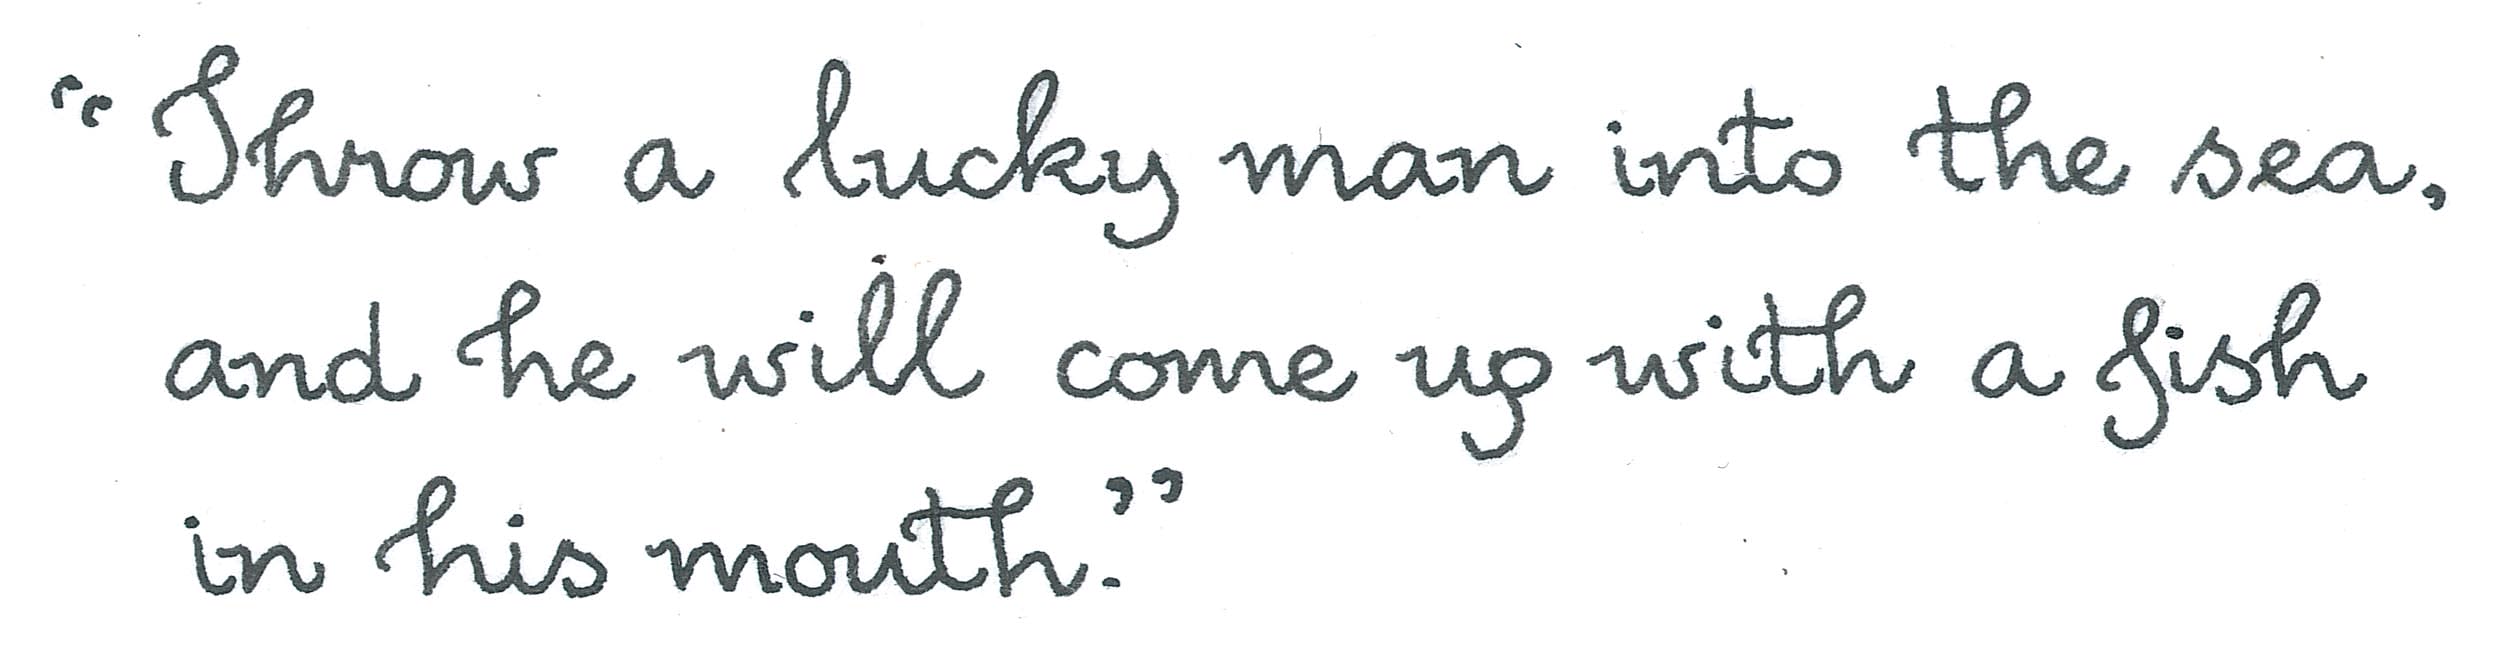 “Throw a lucky man into the sea,
and he will come up with a fish
in his mouth.”